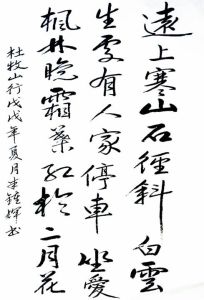 遠上寒山石徑斜白雲
生處有人家停車坐愛
楓林晚霜葉紅於二月花
杜牧山行戊戌年夏月李鍾輝書